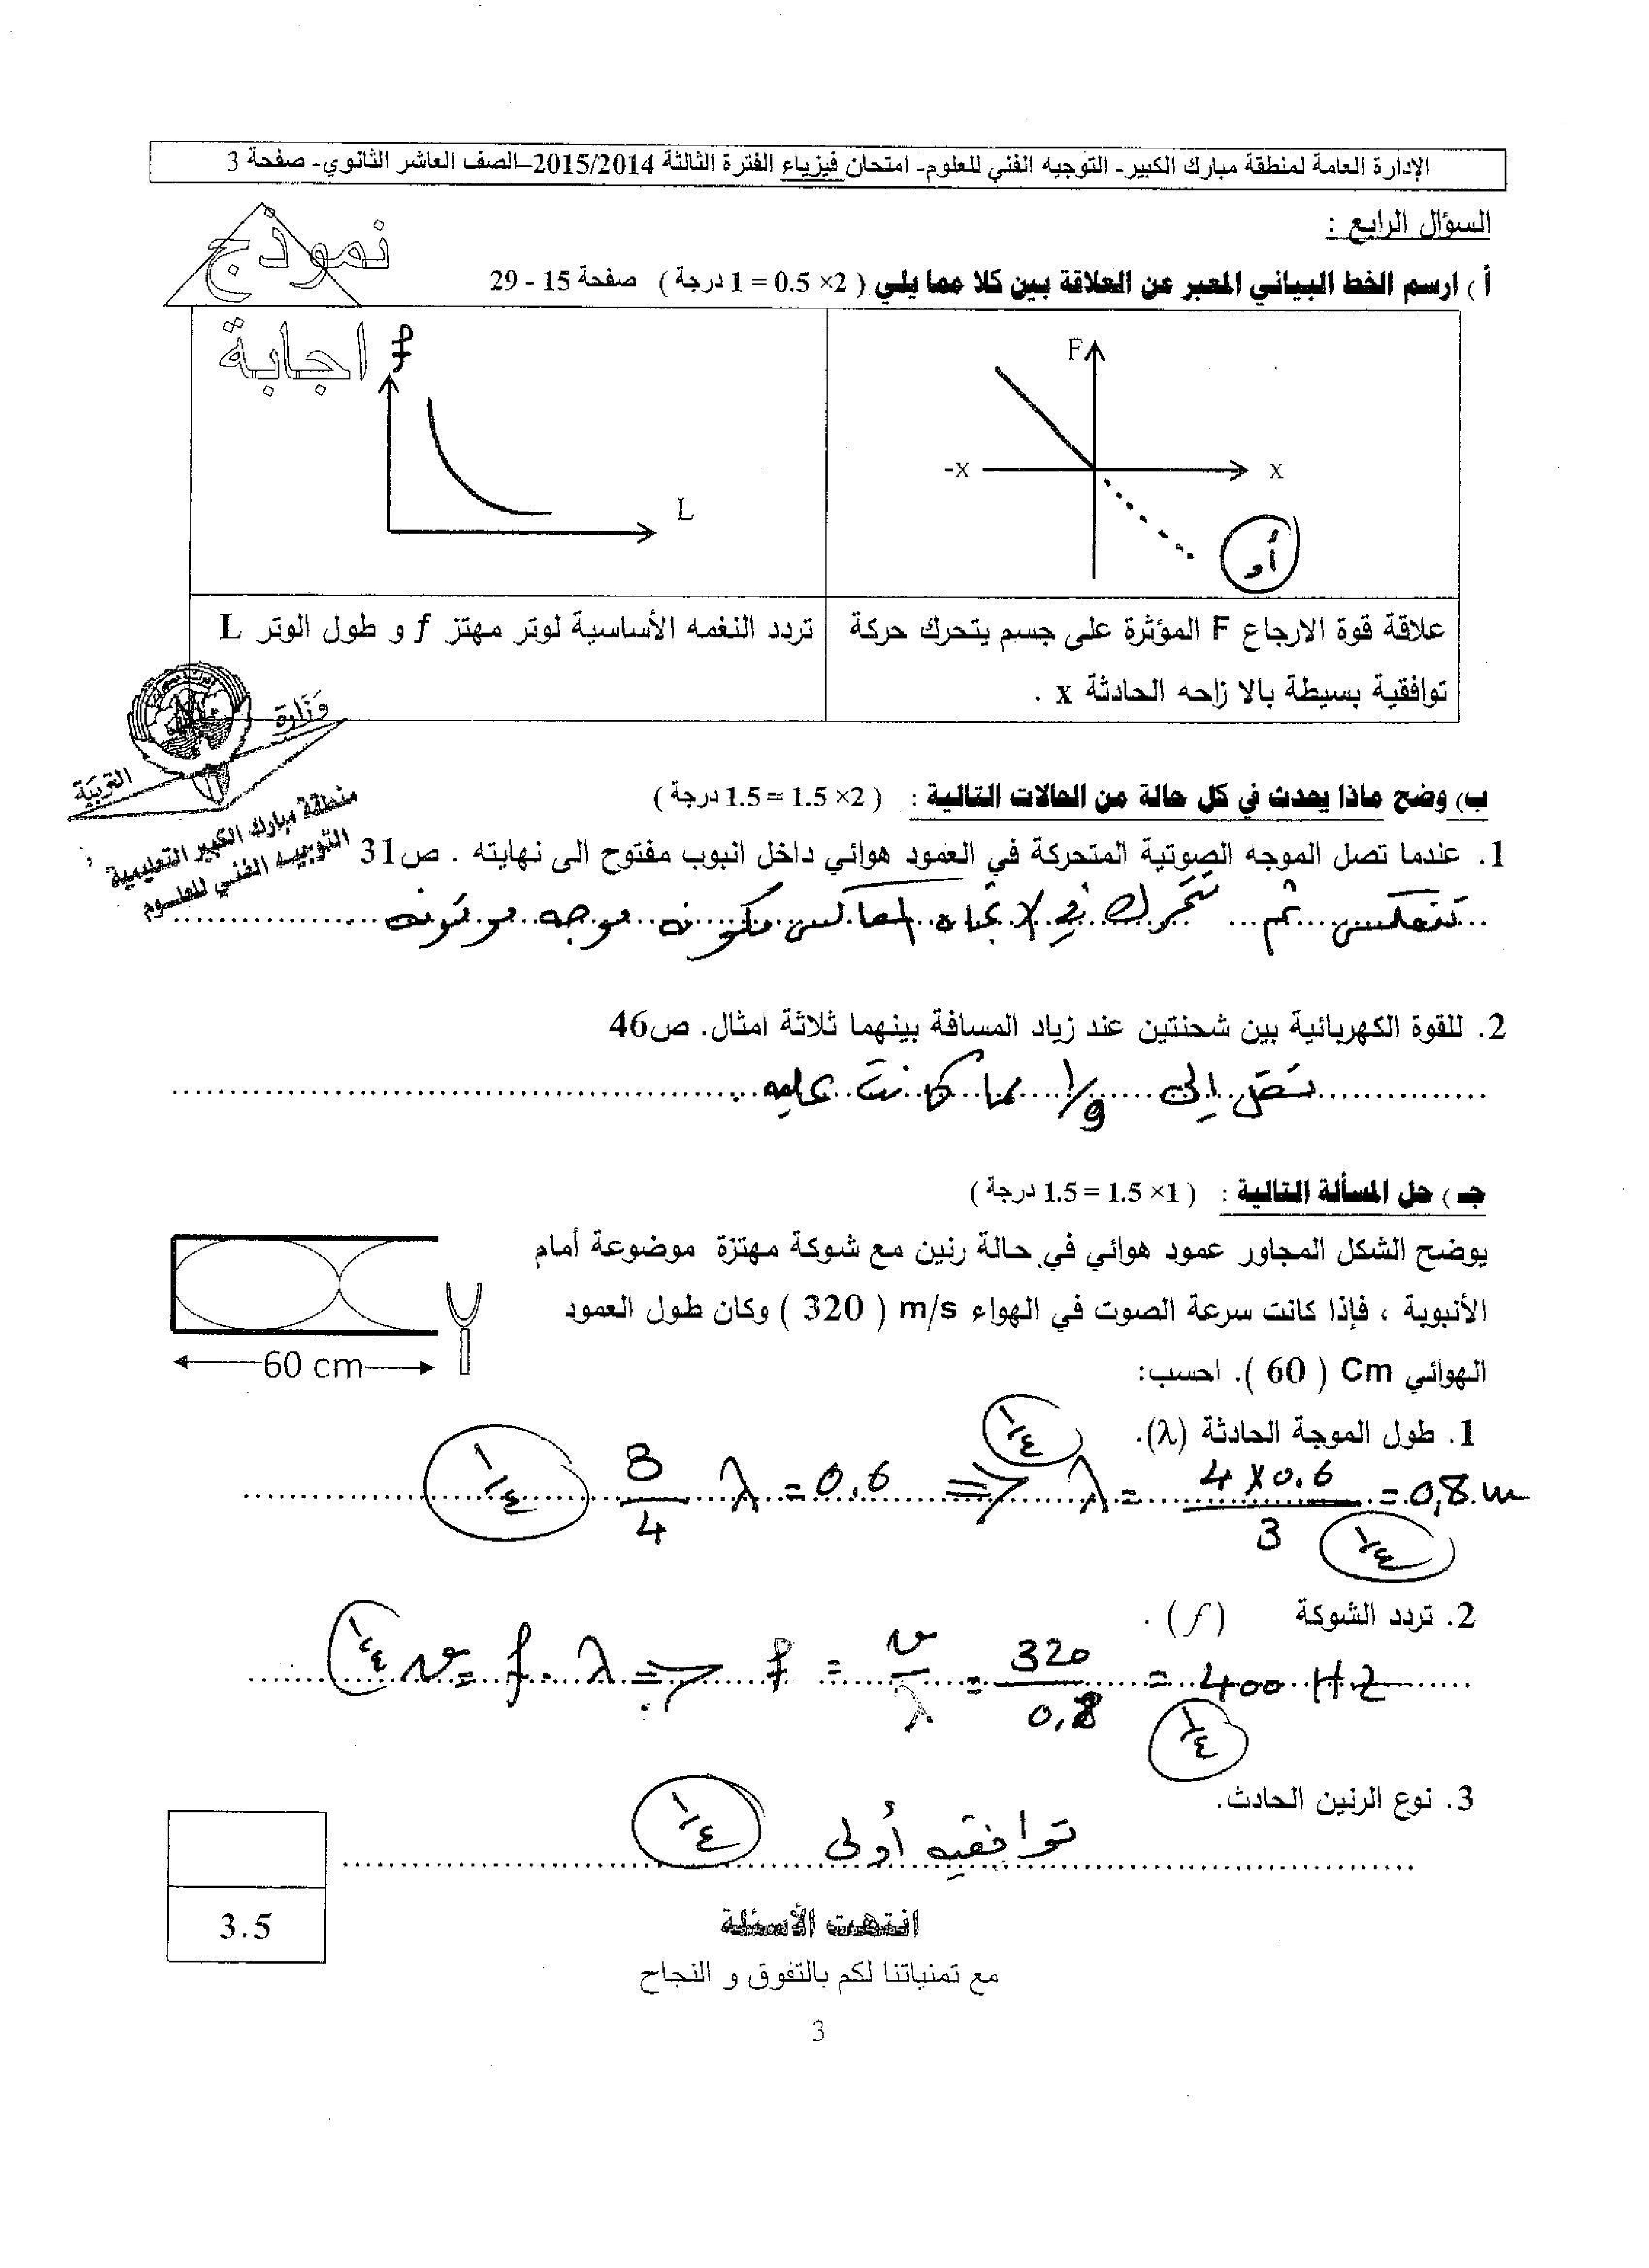 الإدارة العامة لمنطقة مبارك الكبير- التوجيه الفني للعلوم- امتحان فيزياء الفترة الثالثة 2015/2014–الصف العاشر الثانوي- صفحة 3
نموذج
اجابة
السؤال الرابع :
أ ) ارسم الخط البياني المعبر عن العلاقة بين كلا مما يلي ( 2× 0.5 = 1 درجة ) صفحة 15 - 29
F
-x
x
أو
f
L
علاقة قوة الارجاع F المؤثرة على جسم يتحرك حركة
توافقية بسيطة بالا زاحه الحادثة x .
تردد النغمه الأساسية لوتر مهتز f و طول الوتر L
وزارة
التربية
منطقة مبارك الكبير التعليمية
التوجيه الفني للعلوم
ب) وضح ماذا يحدث في كل حالة من الحالات التالية : ( 2× 1.5 = 1.5 درجة )
1. عندما تصل الموجه الصوتية المتحركة في العمود هوائي داخل انبوب مفتوح الى نهايته . ص31
تنعكس ثم تتحرك في الاتجاه المعاكس مكونه موجه موقوفه
2. للقوة الكهربائية بين شحنتين عند زياد المسافة بينهما ثلاثة امثال. ص46
تقل إلى ١/٩ مما كانت عليه
جـ ) حل المسألة التالية : ( 1× 1.5 = 1.5 درجة )
يوضح الشكل المجاور عمود هوائي في حالة رنين مع شوكة مهتزة موضوعة أمام
الأنبوبة ، فإذا كانت سرعة الصوت في الهواء m/s ( 320 ) وكان طول العمود
الهوائي Cm ( 60 ). احسب:
60 cm
1. طول الموجة الحادثة (λ).
١/٤ 3/4 λ = 0.6 ⇒ λ = 4 X 0.6 / 3 = 0,8 m
١/٤
١/٤
2. تردد الشوكة (f) .
١/٤ v = f . λ ⇒ f = v/λ = 320/0.8 = 400 Hz
١/٤
3. نوع الرنين الحادث.
توافقيه أولى ١/٤
3.5
انتهت الأسئلة
مع تمنياتنا لكم بالتفوق و النجاح
3